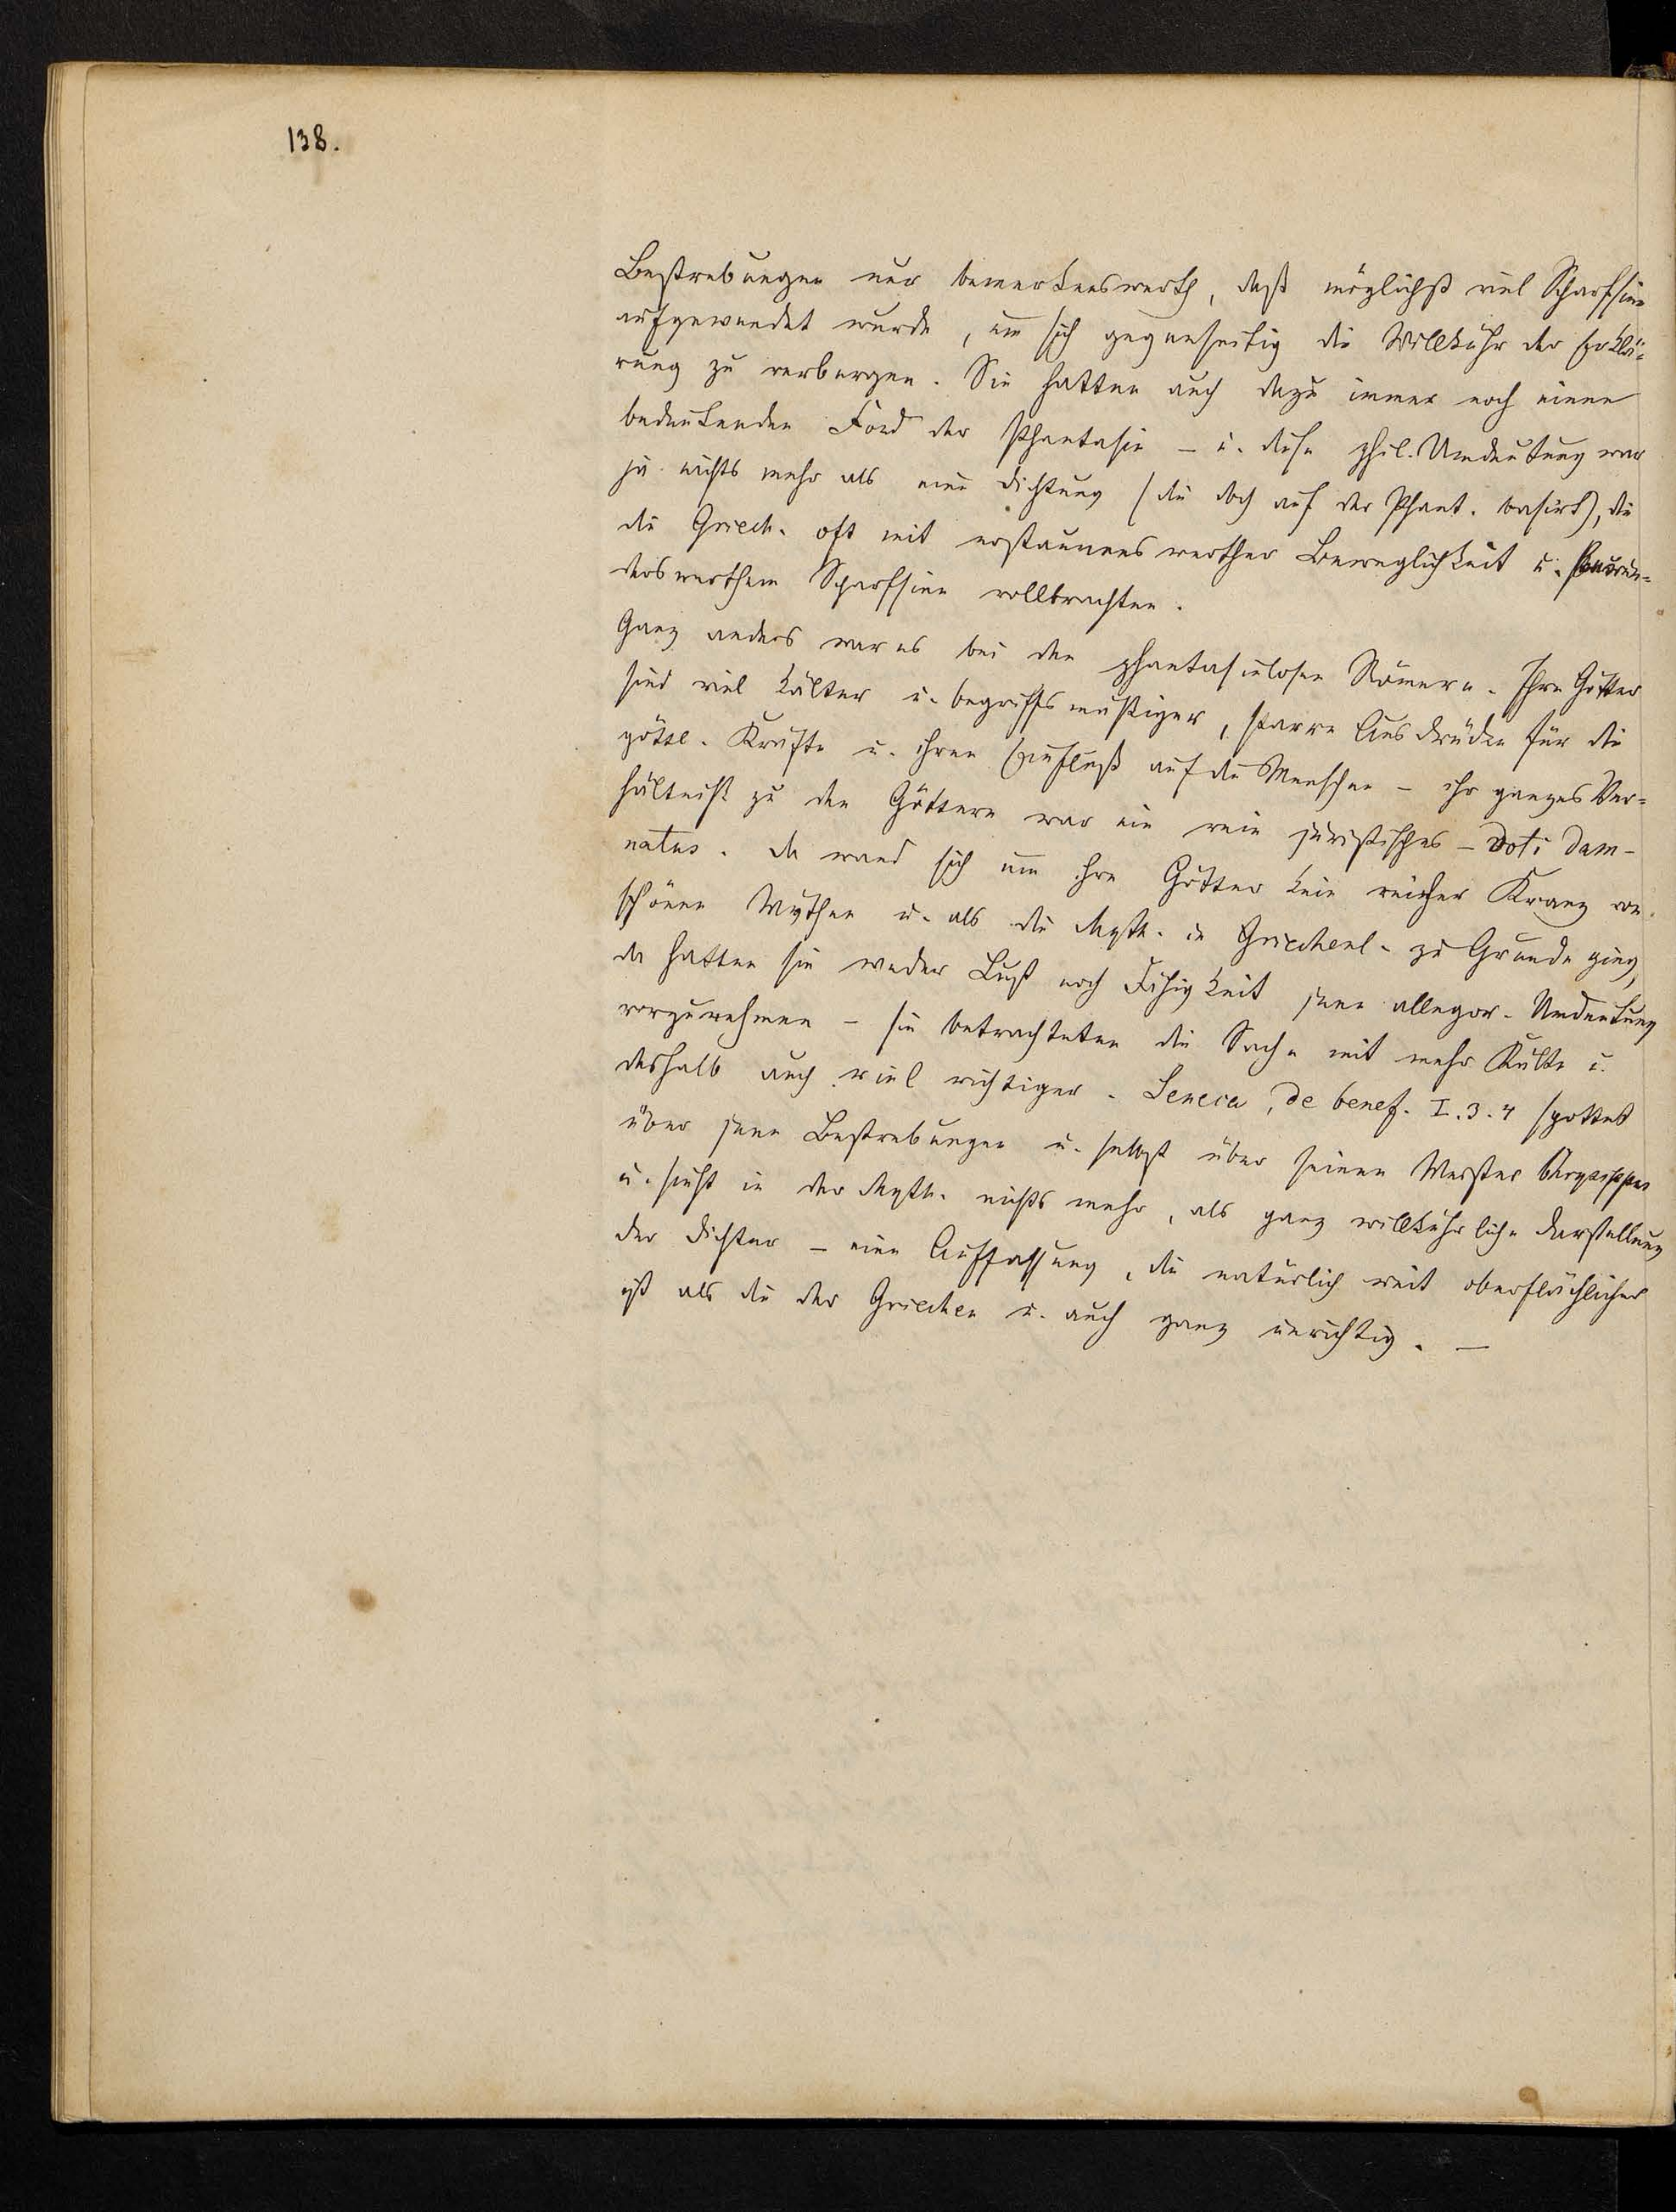 138.
Bestrebungen nur bemerkenswerth, daß möglichst viel Scharfsinn
aufgewendet wurde, um sich gegenseitig die Willkühr der Erklä-
rung zu verbergen. Sie hatten auch dazu immer noch einen
bedeutenden Fond der Phantasie – u. diese phil. Umdeutung war
ja nichts mehr als eine Dichtung (die doch auf der Phant. basirt), die
die Griech. oft mit erstaunenswerther Beweglichkeit u. bewun-
derswerthem Scharfsinn vollbrachten.
Ganz anders war es bei den phantasielosen Römern. Ihre Götter
sind viel kälter u. begriffsmäßiger, starre Ausdrücke für die
göttl. Kräfte u. ihren Einfluß auf die Menschen – ihr ganzes Ver-
hältniß zu den Göttern war ein rein juristisches – voti dam-
natus. Da wand sich um ihre Götter kein reicher Kranz von
schönen Mythen u. als die Myth. in Griechenl. zu Grunde ging,
da hatten sie weder Lust noch Fähigkeit jene allegor. Umdeutung
vorzunehmen – sie betrachteten die Sache mit mehr Kälte u.
deshalb auch viel richtiger. Seneca, de benef. I.3.4 spottet
über jene Bestrebungen u. selbst über seinen Meister Chrysippos
u. sieht in der Myth. nichts mehr, als ganz willkührliche Darstellung
der Dichter – eine Auffassung, die natürlich weit oberflächlicher
ist als die der Griechen u. auch ganz unrichtig. –